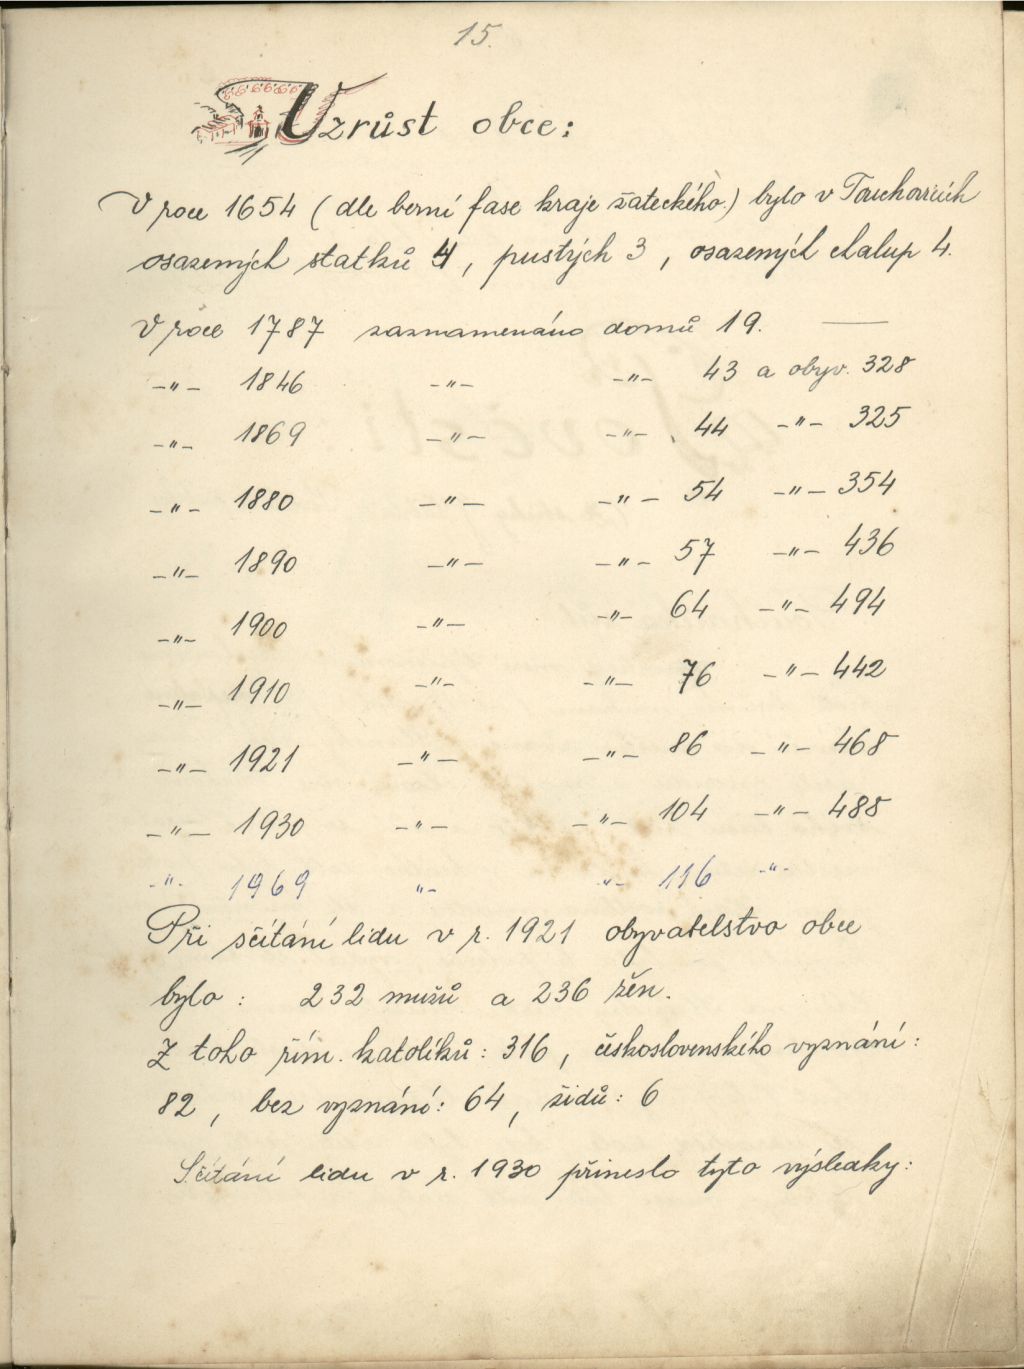 15.
Vzrůst obce:
V roce 1654 (dle berní fase kraje žateckého.) bylo v Touchovicích
osazených statků 4, pustých 3, osazených chalup 4.
V roce 1787 zaznamenáno domů 19. —
–"– 1846 –"– –"– 43 a obyv. 328
–"– 1869 –"– –"– 44 –"– 325
–"– 1880 –"– –"– 54 –"– 354
–"– 1890 –"– –"– 57 –"– 436
–"– 1900 –"– –"– 64 –"– 494
–"– 1910 –"– –"– 76 –"– 442
–"– 1921 –"– –"– 86 –"– 468
–"– 1930 –"– –"– 104 –"– 485
-"- 1969 "- "- 116 -"-
Při sčítání lidu v r. 1921 obyvatelstvo obce
bylo: 232 mužů a 236 žen.
Z toho řím. katolíků: 316, československého vyznání:
82, bez vyznání: 64, židů: 6
Sčítání lidu v r. 1930 přineslo tyto výsledky: